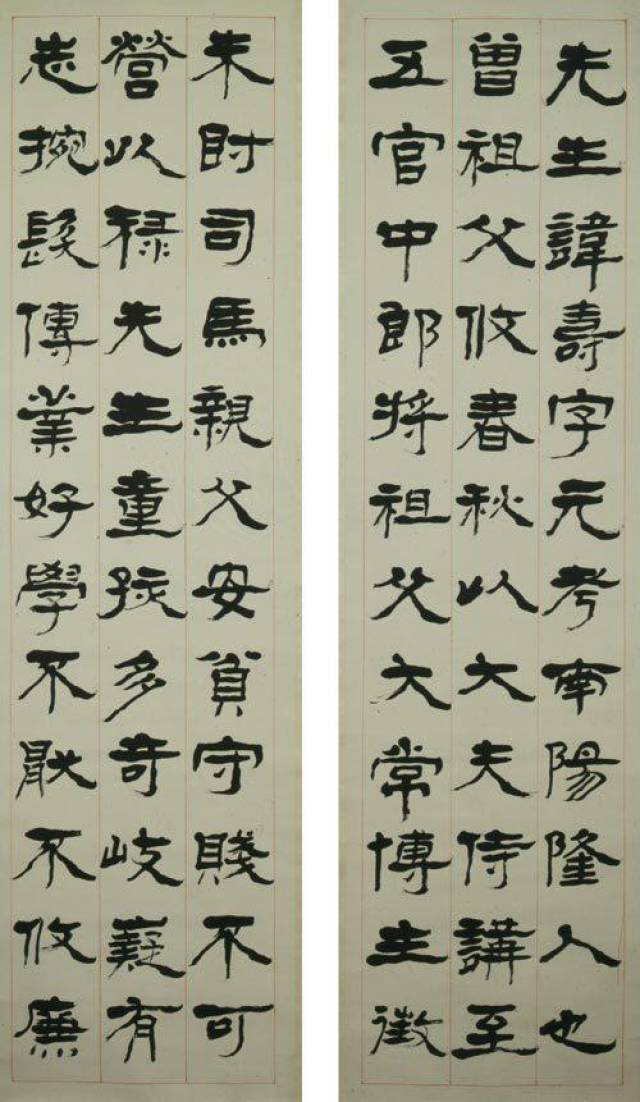 先生諱壽字元考南陽隆人也
曾祖父攸春秋以大夫侍講至
五官中郎將祖父大常博生徵
朱爵司馬親父安貧守賤不可
營以祿先生童孩多奇岐嶷有
志捥髮傳業好學不猒不攸廉